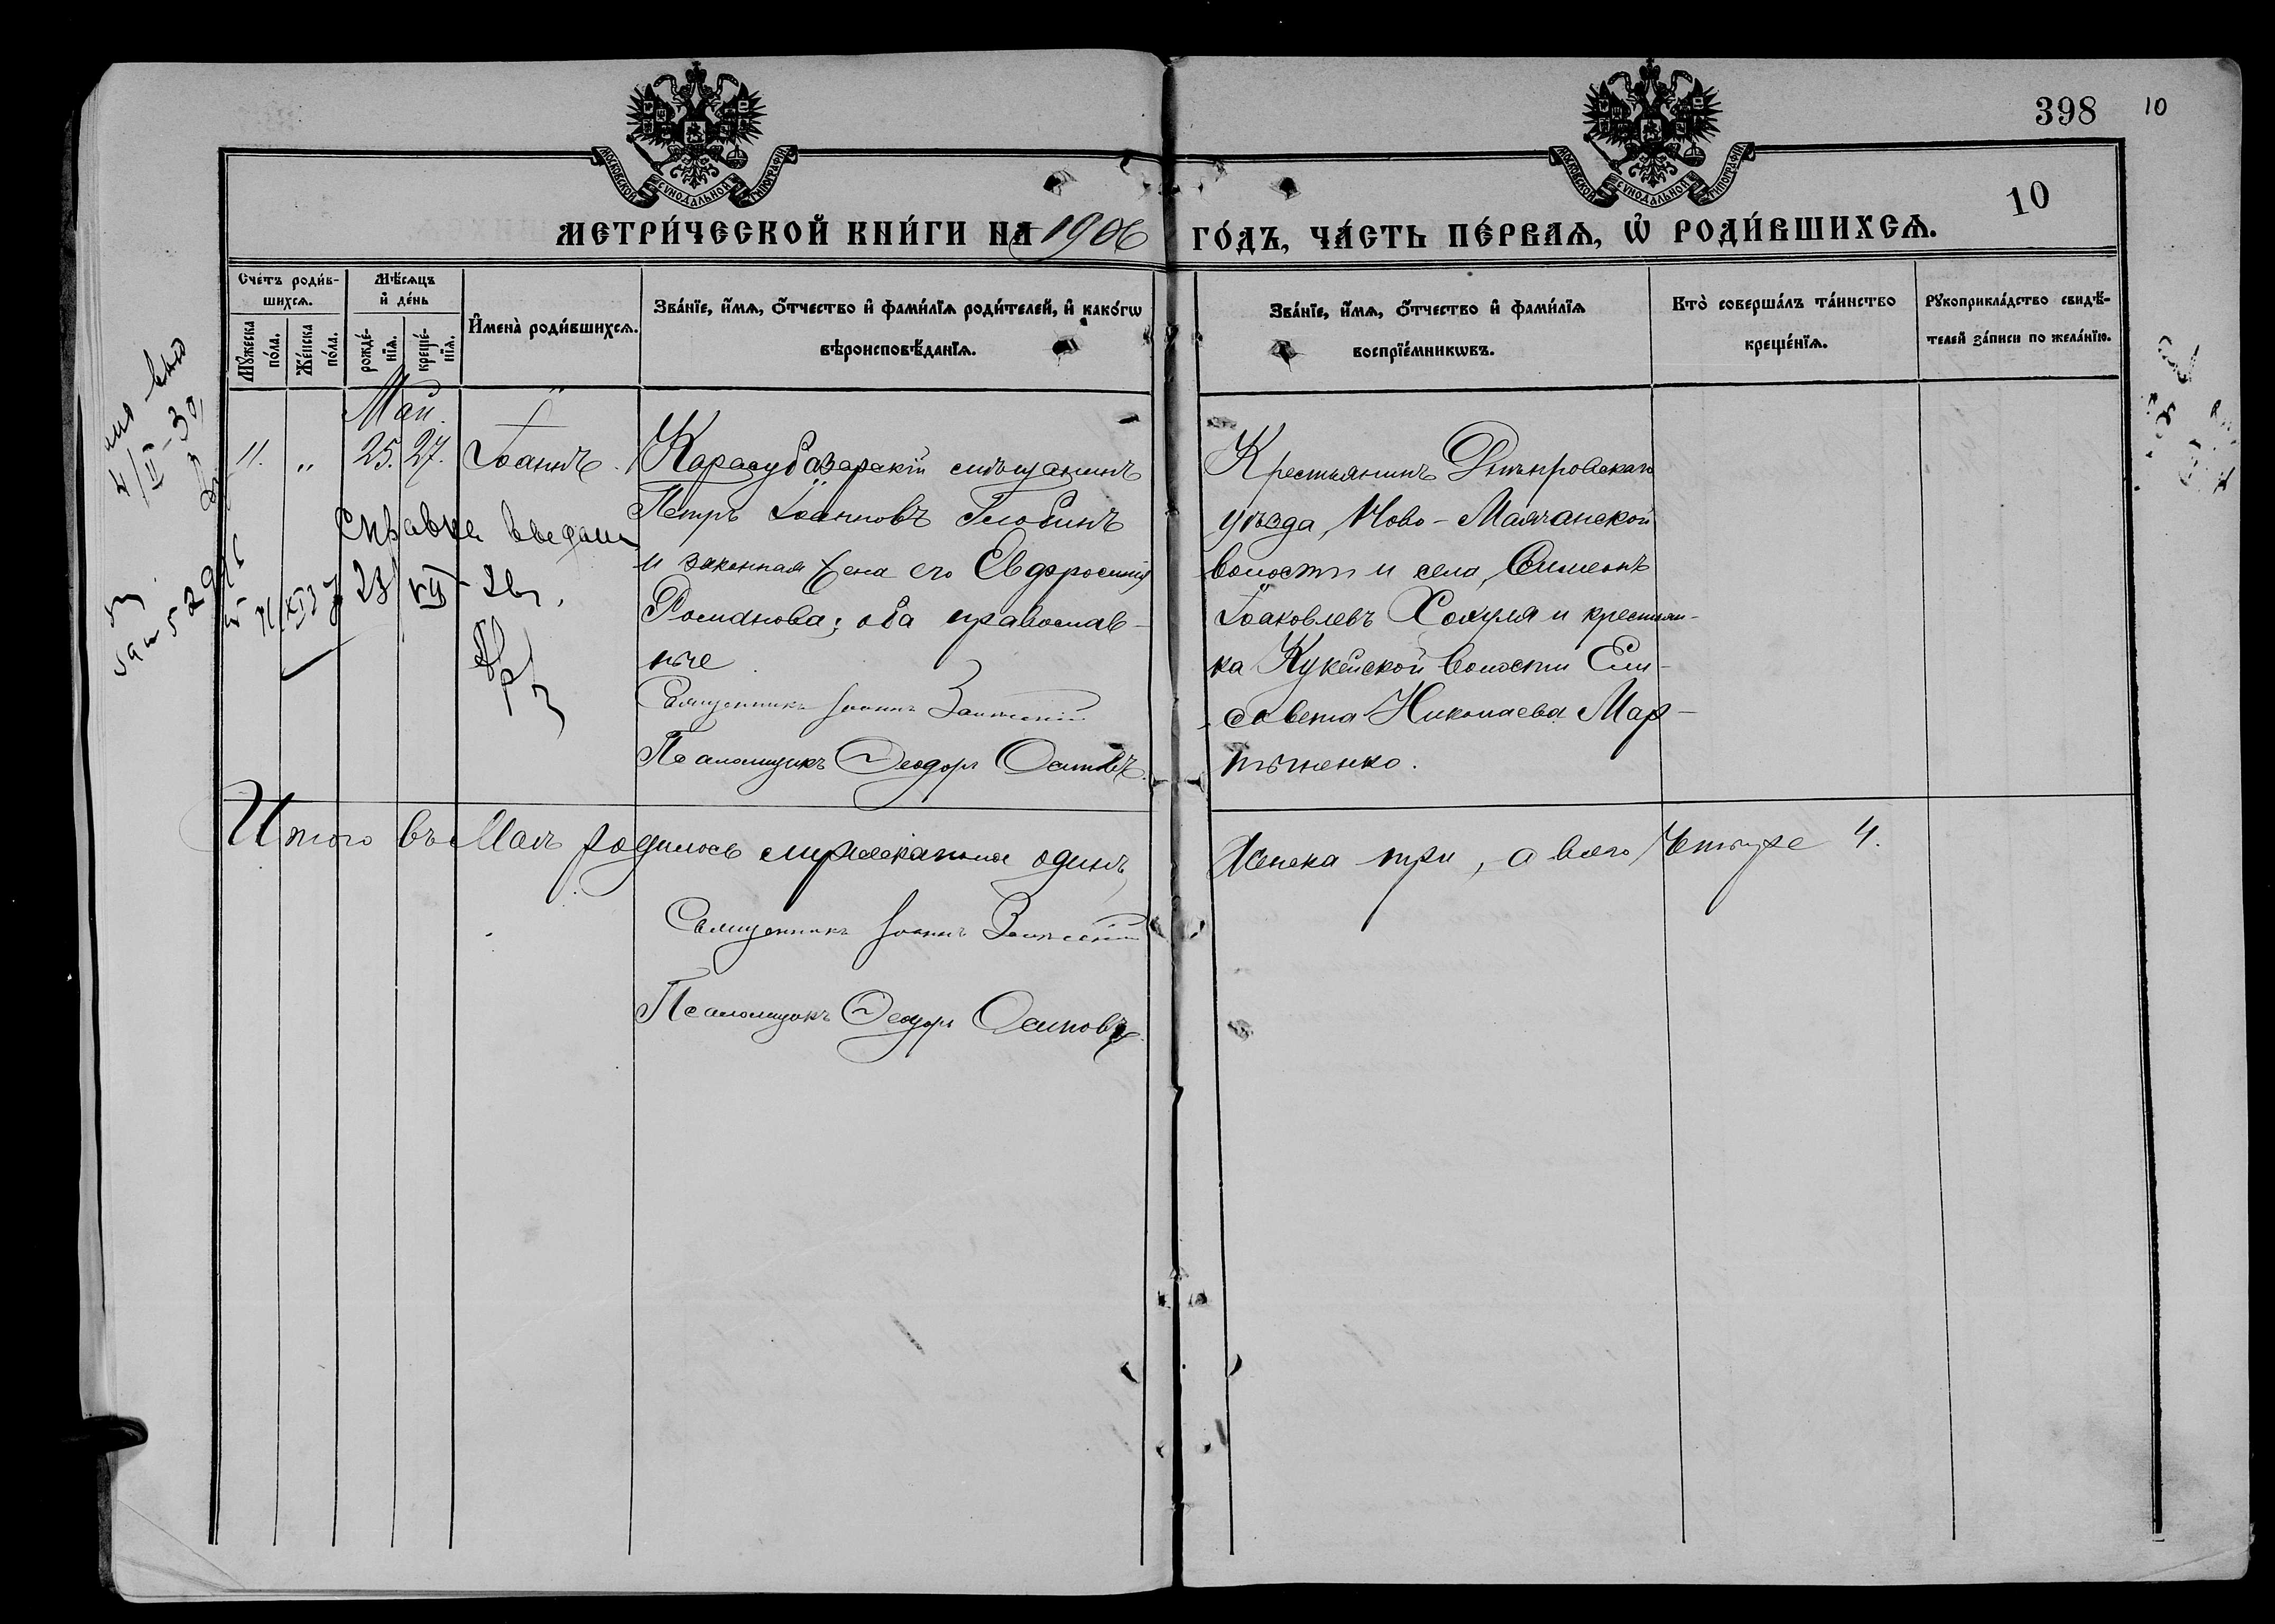 МОСКОВСКОЙ СѴНОДАЛЬНОЙ ТИПОГРАФІИ
МОСКОВСКОЙ СѴНОДАЛЬНОЙ ТИПОГРАФІИ
398 10
10
МЕТРИ́ЧЕСКОЙ КНИ́ГИ НА 1906 ГО́ДЪ, ЧА́СТЬ ПЕ́РВАѦ, Ѡ҆ РОДИ́ВШИХСѦ.
Сче́тъ роди́в-
шихсѧ.
Мꙋ́жеска
по́ла.
Же́нска
по́ла.
Мѣ́сѧцъ
и҆ де́нь
рожде́-
нїѧ.
креще́-
нїѧ.
И҆мена̀ роди́вшихсѧ.
Зва́нїе, и҆́мѧ, ѻ҆́тчество и҆ фами́лїѧ роди́телей, и҆ како́гѡ
вѣроисповѣ́данїѧ.
Зва́нїе, и҆́мѧ, ѻ҆́тчество и҆ фами́лїѧ
воспрїе́мникѡвъ.
Кто̀ соверша́лъ та́инство
креще́нїѧ.
Рꙋкоприкла́дство свидѣ́-
телей за́писи по жела́нїю.
Май
11. „ 25. 27. Іоаннъ.
Карасубазарскій мѣщанинъ
Петръ Іоанновъ Глобинъ
и законная жена его Евфросинія
Романова; оба православ-
ные
Священникъ Іоаннъ
Псаломщикъ Ѳеодоръ Осиповъ.
Крестьянинъ Днѣпровскаго
уѣзда, Ново-Маячанской
волости и села, Симеонъ
Іоаковлевъ Хохуля и крестьян-
ка Кукейской волости Ели-
савета Николаева Мар-
тыненко.
Справка
23/VII
Итого въ Маѣ родилось мужеска пола одинъ,
Женска три, а всего четыре 4.
Священникъ Іоаннъ
Псаломщикъ Ѳеодоръ Осиповъ